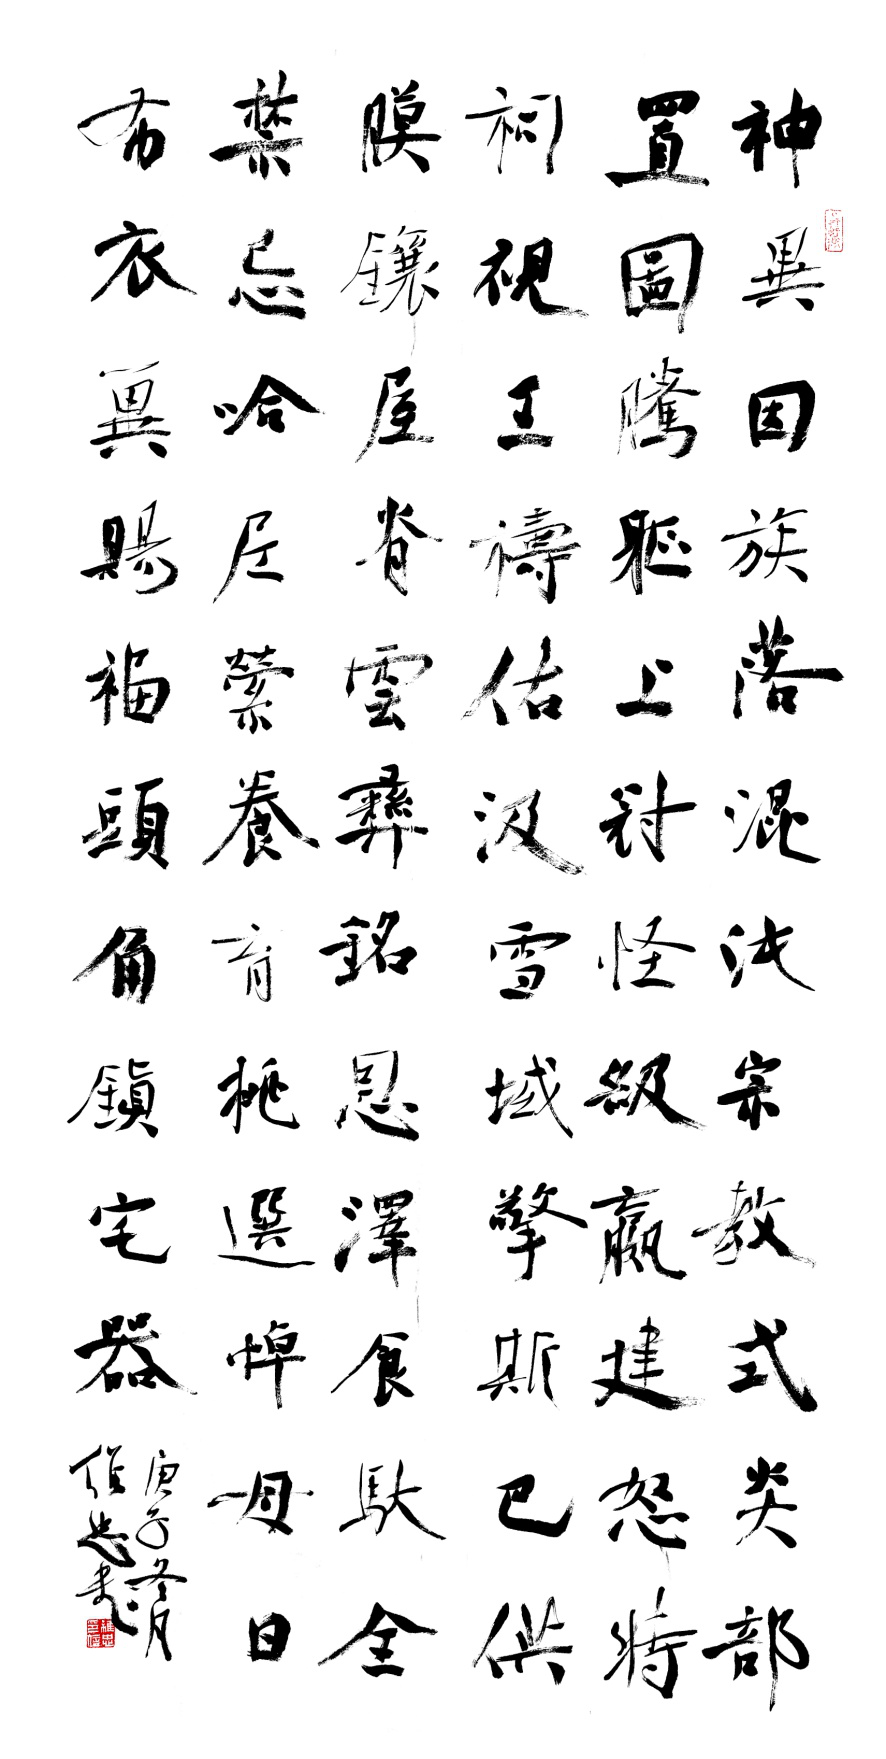 神異因族落混沌宗教式炎部
置圖騰軀上封怪級贏建怒特
祠視王禱佑汲雪域擎斯巴供
膜鑲屋脊雲彝銘恩澤食馱全
禁忌哈左縈養育桃選悼母日
布衣異賜福頭角鎮宅器
庚子冬月
維忠書